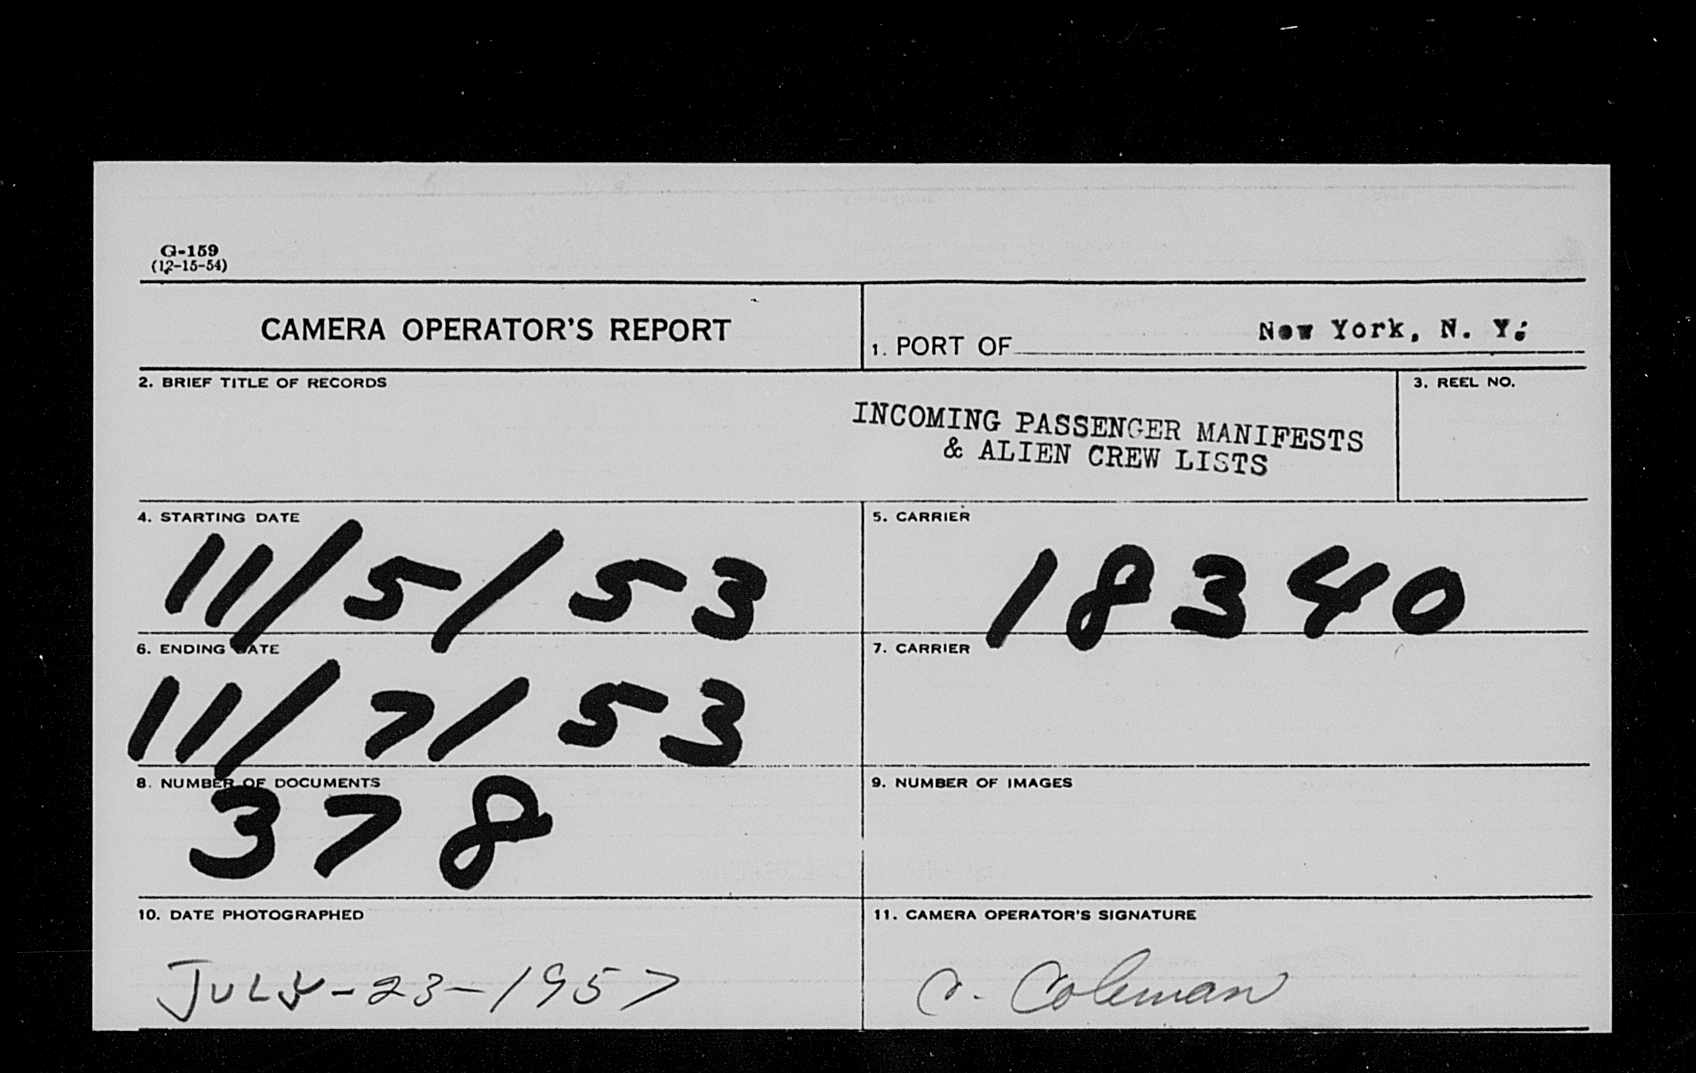 G-159
(12-15-54)
CAMERA OPERATOR'S REPORT
1. PORT OF New York, N. Y.
2. BRIEF TITLE OF RECORDS
INCOMING PASSENGER MANIFESTS
& ALIEN CREW LISTS
3. REEL NO.
4. STARTING DATE
11/5/53
5. CARRIER
18340
6. ENDING DATE
11/7/53
7. CARRIER
8. NUMBER OF DOCUMENTS
378
9. NUMBER OF IMAGES
10. DATE PHOTOGRAPHED
JULY-23-1957
11. CAMERA OPERATOR'S SIGNATURE
Coleman